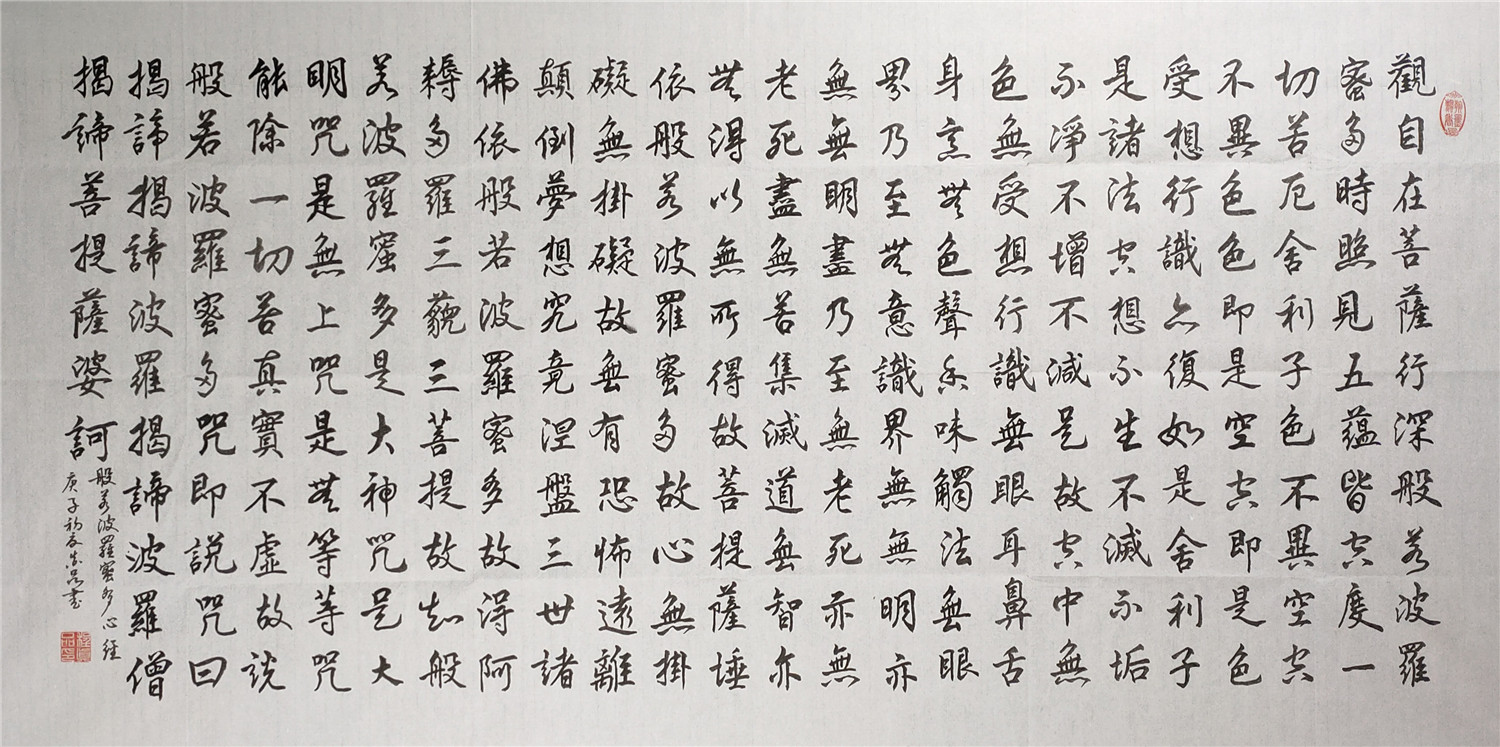 觀自在菩薩行深般若波羅
蜜多時照見五蘊皆空度一
切苦厄舍利子色不異空空
不異色色即是空空即是色
受想行識亦復如是舍利子
是諸法空想不生不滅不垢
不淨不增不減是故空中無
色無受想行識無眼耳鼻舌
身意無色聲香味觸法無眼
界乃至無意識界無無明亦
無無明盡乃至無老死亦無
老死盡無苦集滅道無智亦
無得以無所得故菩提薩埵
依般若波羅蜜多故心無掛
礙無掛礙故無有恐怖遠離
顛倒夢想究竟涅盤三世諸
佛依般若波羅蜜多故得阿
耨多羅三藐三菩提故知般
若波羅蜜多是大神咒是大
明咒是無上咒是無等等咒
能除一切苦真實不虛故說
般若波羅蜜多咒即說咒曰
揭諦揭諦波羅揭諦波羅僧
揭諦菩提薩婆訶
般若波羅蜜多心經
庚子初夏書